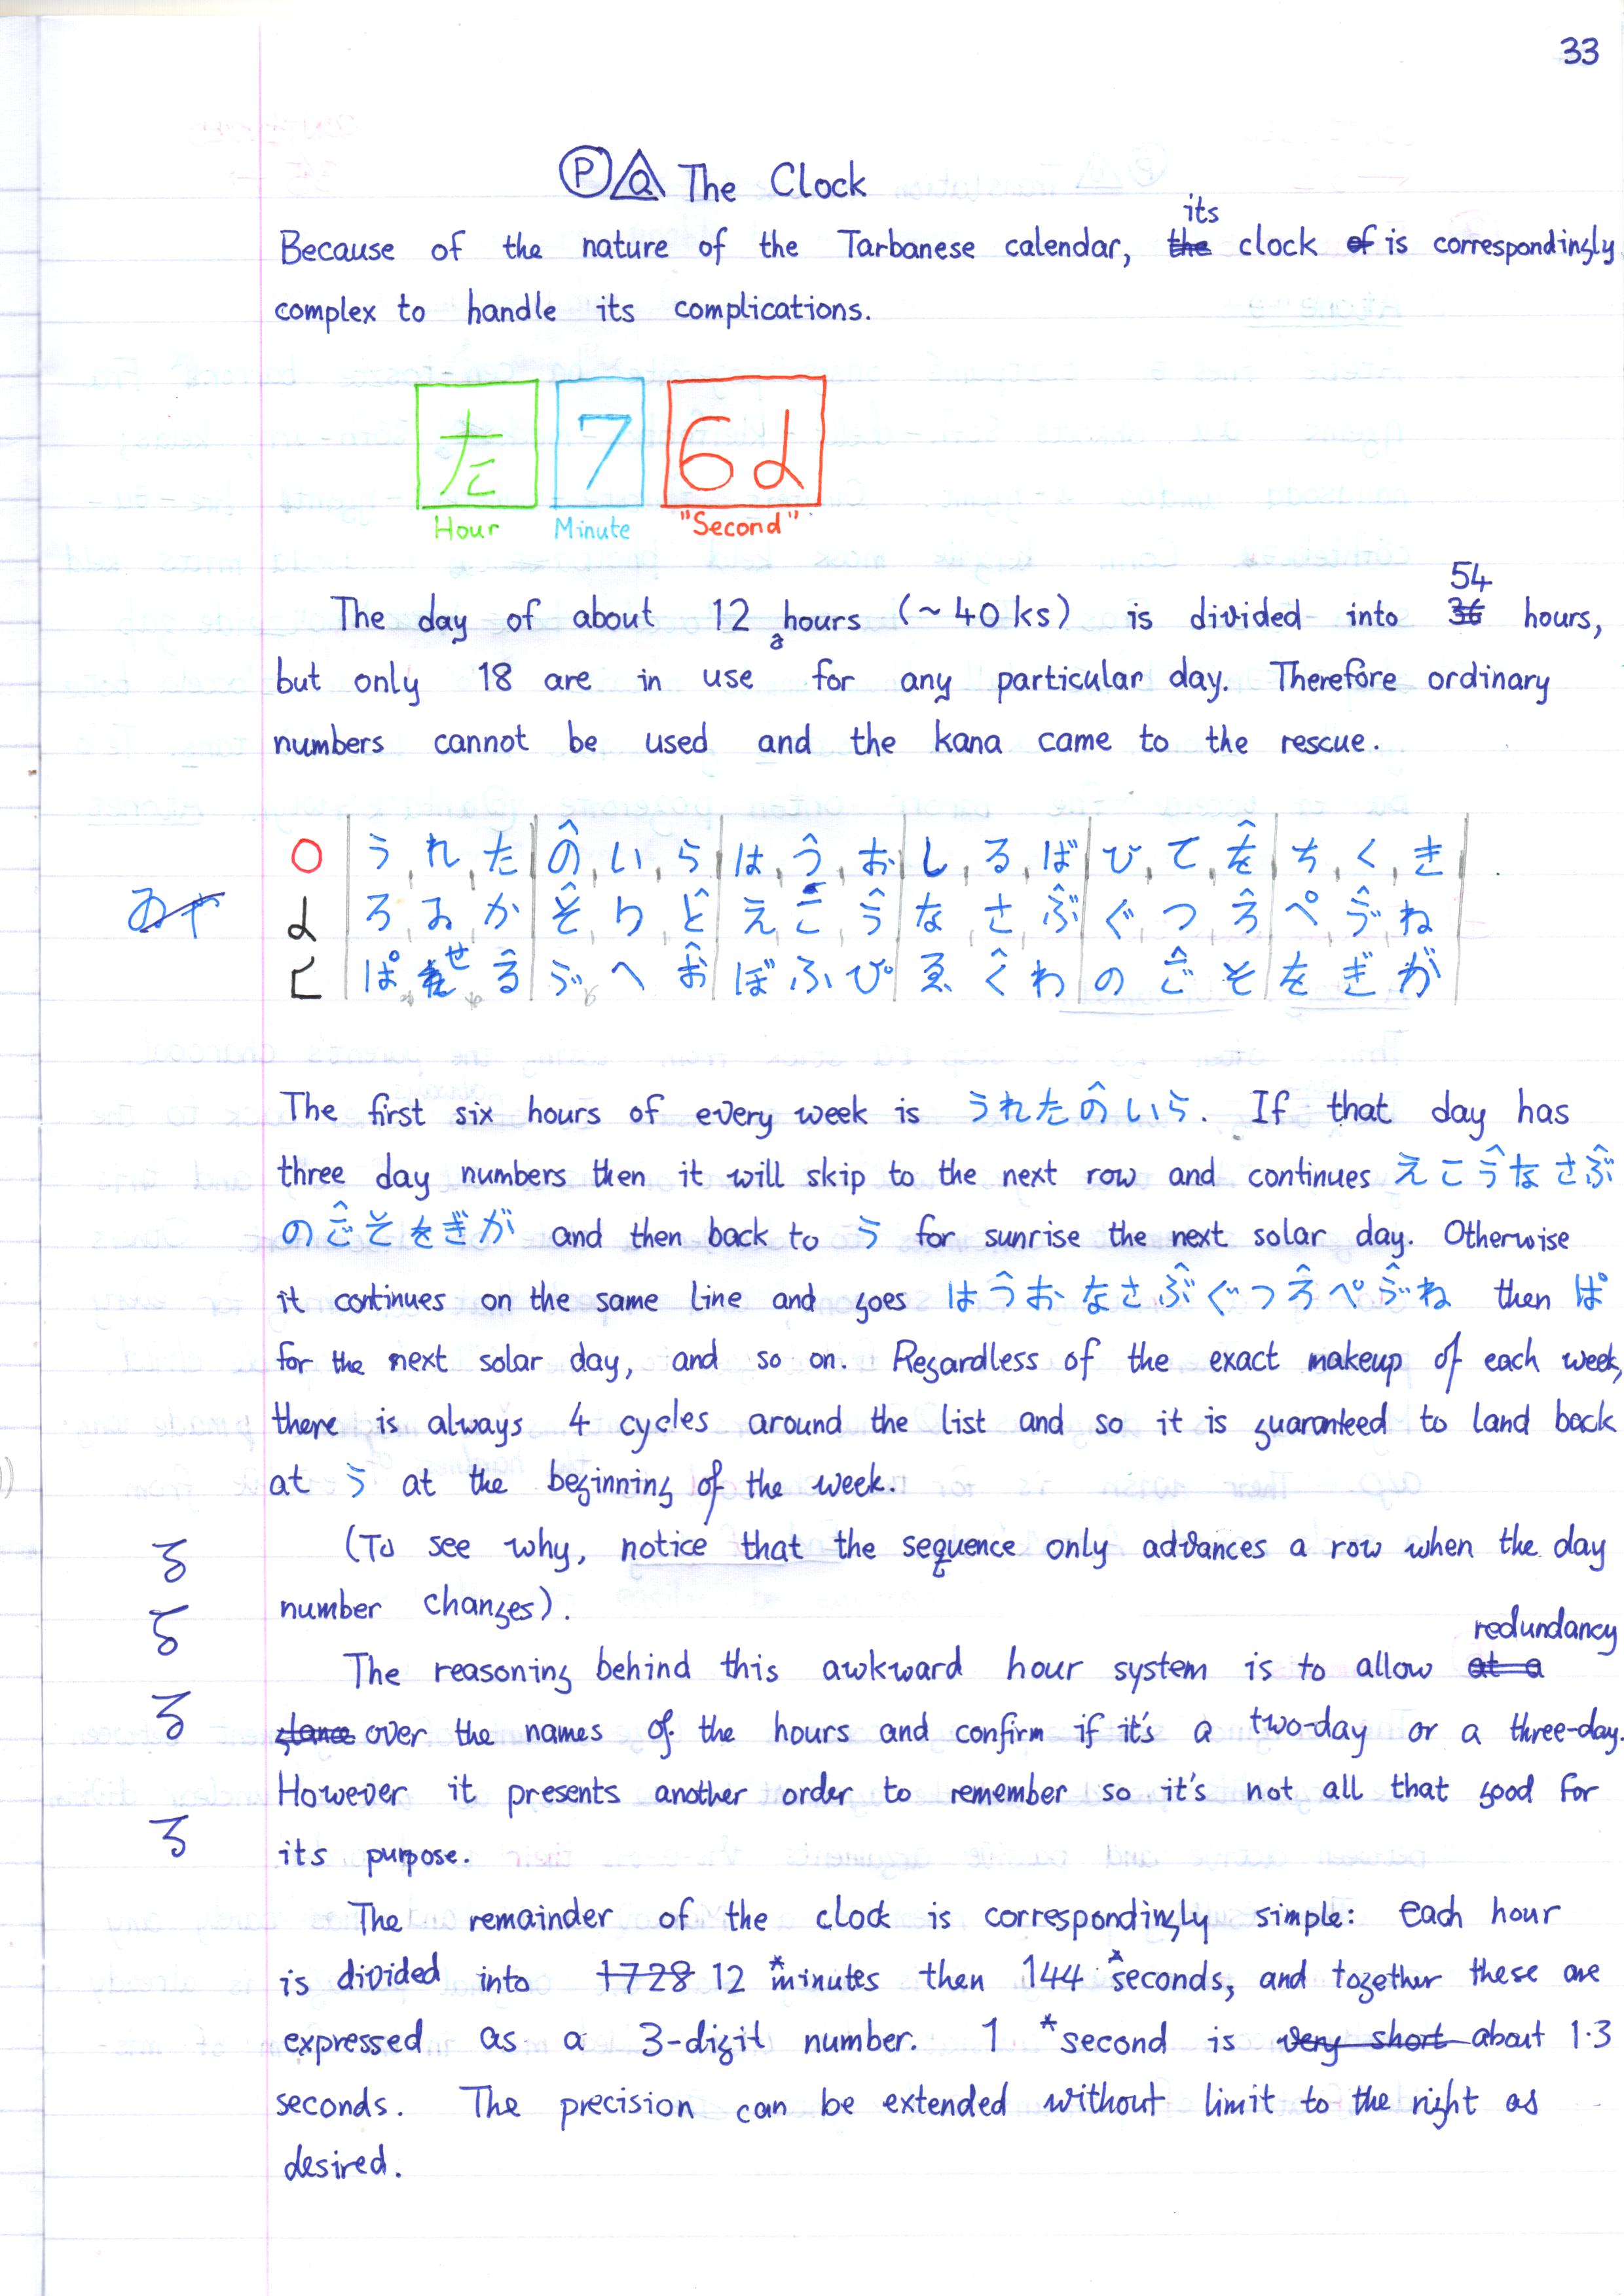 33
Ⓟ Q The Clock
its
Because of the nature of the Tarbanese calendar, the clock of is correspondingly
complex to handle its complications.
た 7 6
Hour Minute "Second"
54
The day of about 12 hours (~40 ks) is divided into 36 hours,
but only 18 are in use for any particular day. Therefore ordinary
numbers cannot be used and the kana came to the rescue.
○ う れ た の̂ い ら は う̂ お し る ば ひ て を̂ ち く き
ろ ゐ か そ̂ り ど え こ う̂ な さ ぶ̂ ぐ つ ろ̂ ぺ ゔ̂ ね
ぱ せ る̂ ゔ へ お̂ ぼ ふ ぴ ゑ く̂ わ の ご̂ そ を ぎ が
The first six hours of every week is うれたの̂いら. If that day has
three day numbers then it will skip to the next row and continues えこう̂なさぶ̂
のご̂そをぎが and then back to う for sunrise the next solar day. Otherwise
it continues on the same line and goes はう̂おなさぶ̂ぐつろ̂ぺゔ̂ね then ぱ
for the next solar day, and so on. Regardless of the exact makeup of each week,
there is always 4 cycles around the list and so it is guaranteed to land back
at う at the beginning of the week.
(To see why, notice that the sequence only advances a row when the day
number changes).
redundancy
The reasoning behind this awkward hour system is to allow at a
glance over the names of the hours and confirm if it's a two-day or a three-day.
However it presents another order to remember so it's not all that good for
its purpose.
The remainder of the clock is correspondingly simple: each hour
is divided into 1728 12 *minutes then 144 *seconds, and together these are
expressed as a 3-digit number. 1 *second is very short about 1·3
seconds. The precision can be extended without limit to the right as
desired.